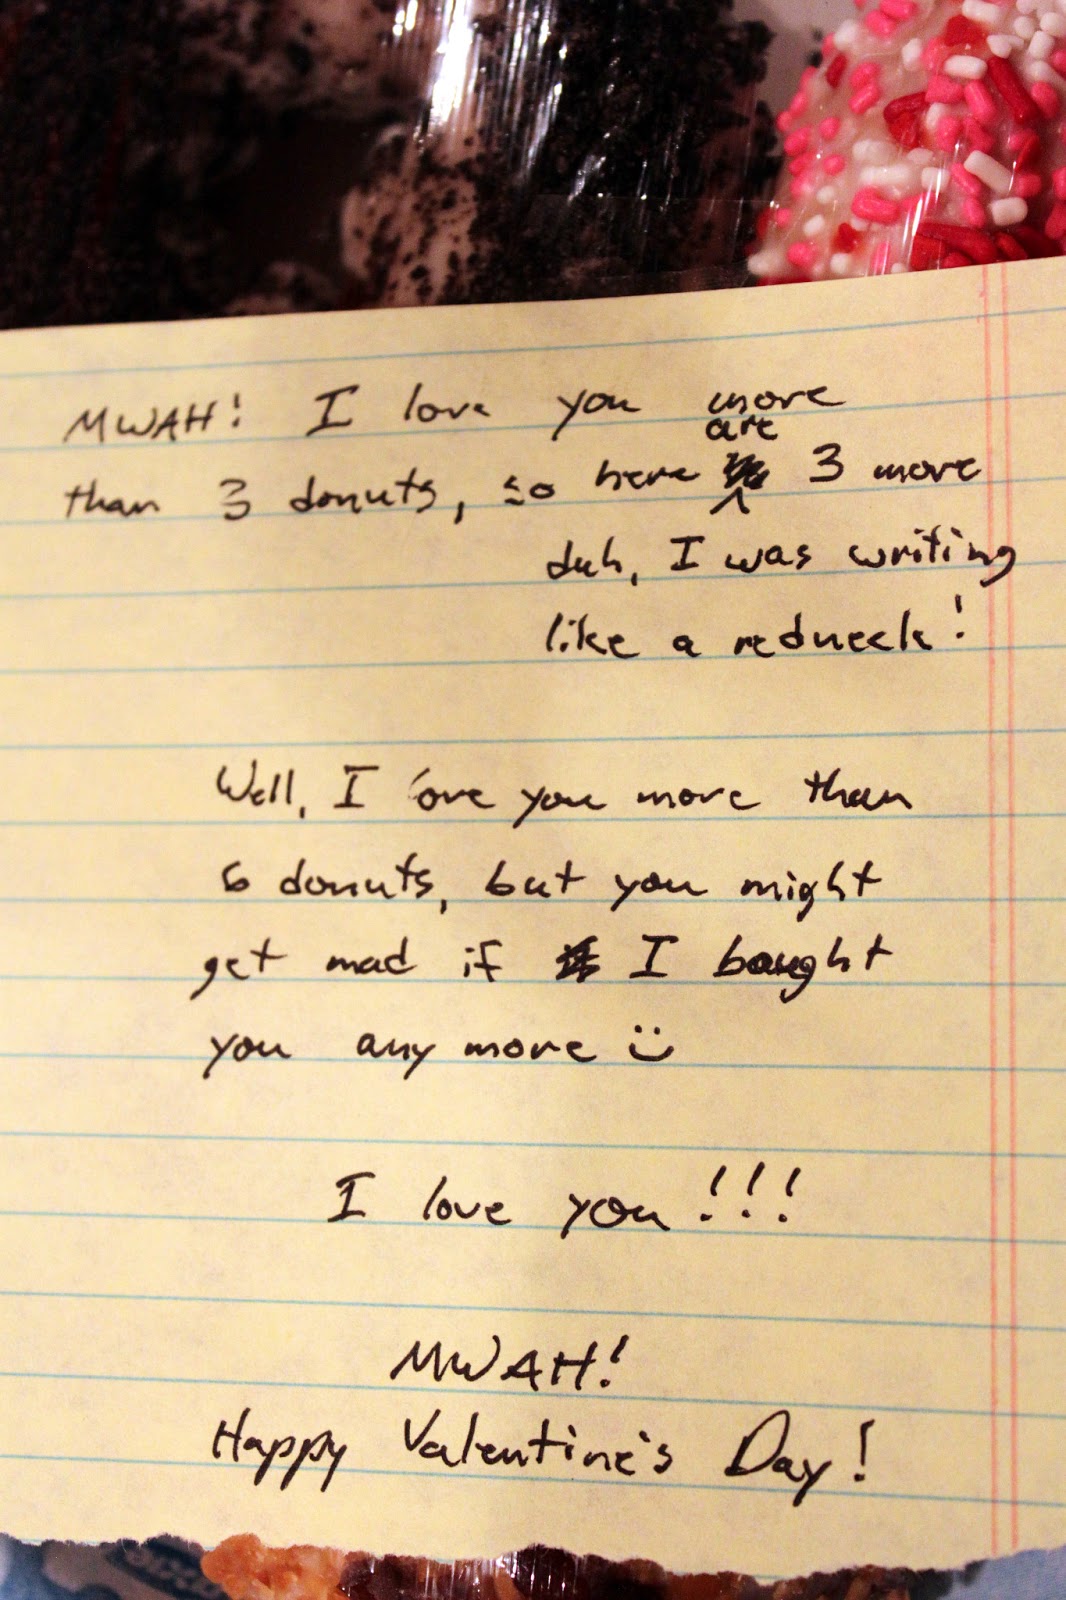 MWAH! I love you more
than 3 donuts, so here are 3 more
duh, I was writing
like a redneck!
Well, I love you more than
6 donuts, but you might
get mad if I bought
you any more :)
I love you!!!
MWAH!
Happy Valentine's Day!